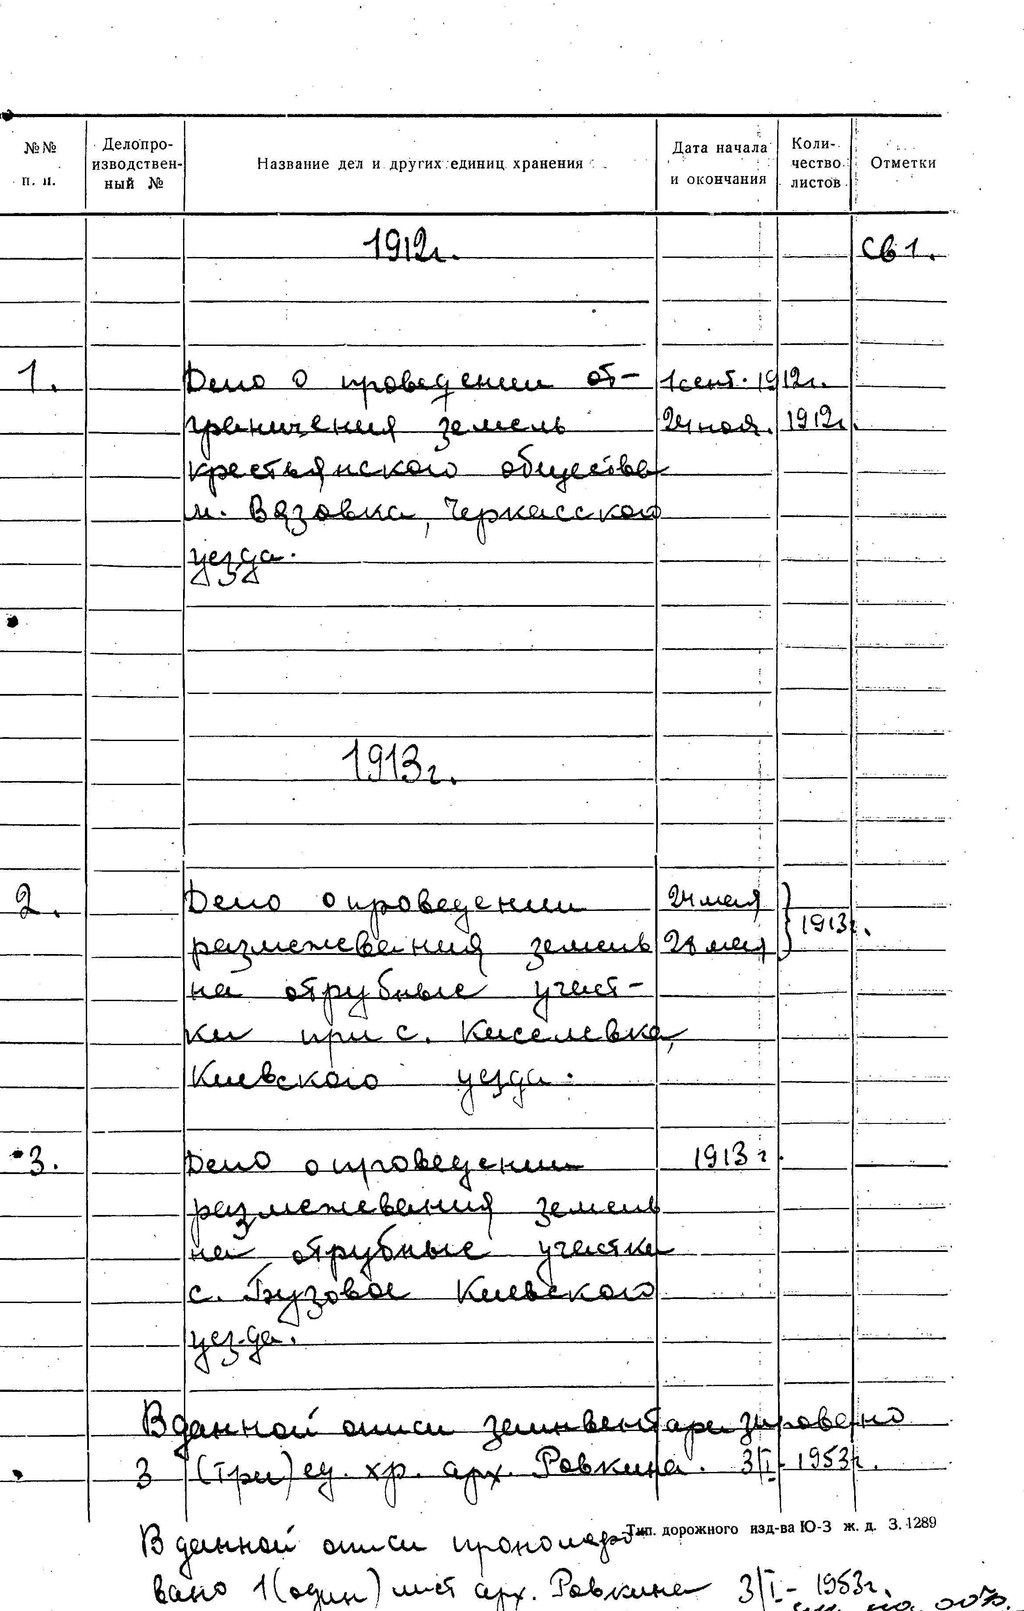 №№ п. п.
Делопроизводственный №
Название дел и других единиц хранения
Дата начала и окончания
Количество листов
Отметки
1912г.
Св 1.
1. Дело о проведении от- 1 сент. 1912г.
граничения земель 24 ноя. 1912г.
крестьянского общества
м. Вязовка, Черкасского
уезда.
1913г.
2. Дело о проведении 24 мая
размежевания земель 28 мая } 1913г.
на отрубные участ-
ки при с. Киселевка,
Киевского уезда.
3. Дело о проведении 1913г.
размежевания земель
на отрубные участки
с. Бузовое Киевского
уезда.
В данной описи заинвентаризировано
3 (три) ед. хр. арх. Ровкина. 3/I-1953г.
Тип. дорожного изд-ва Ю-З ж. д. З. 1289
В данной описи прономеро-
вано 1 (один) лист арх. Ровкина 3/I-1953г.